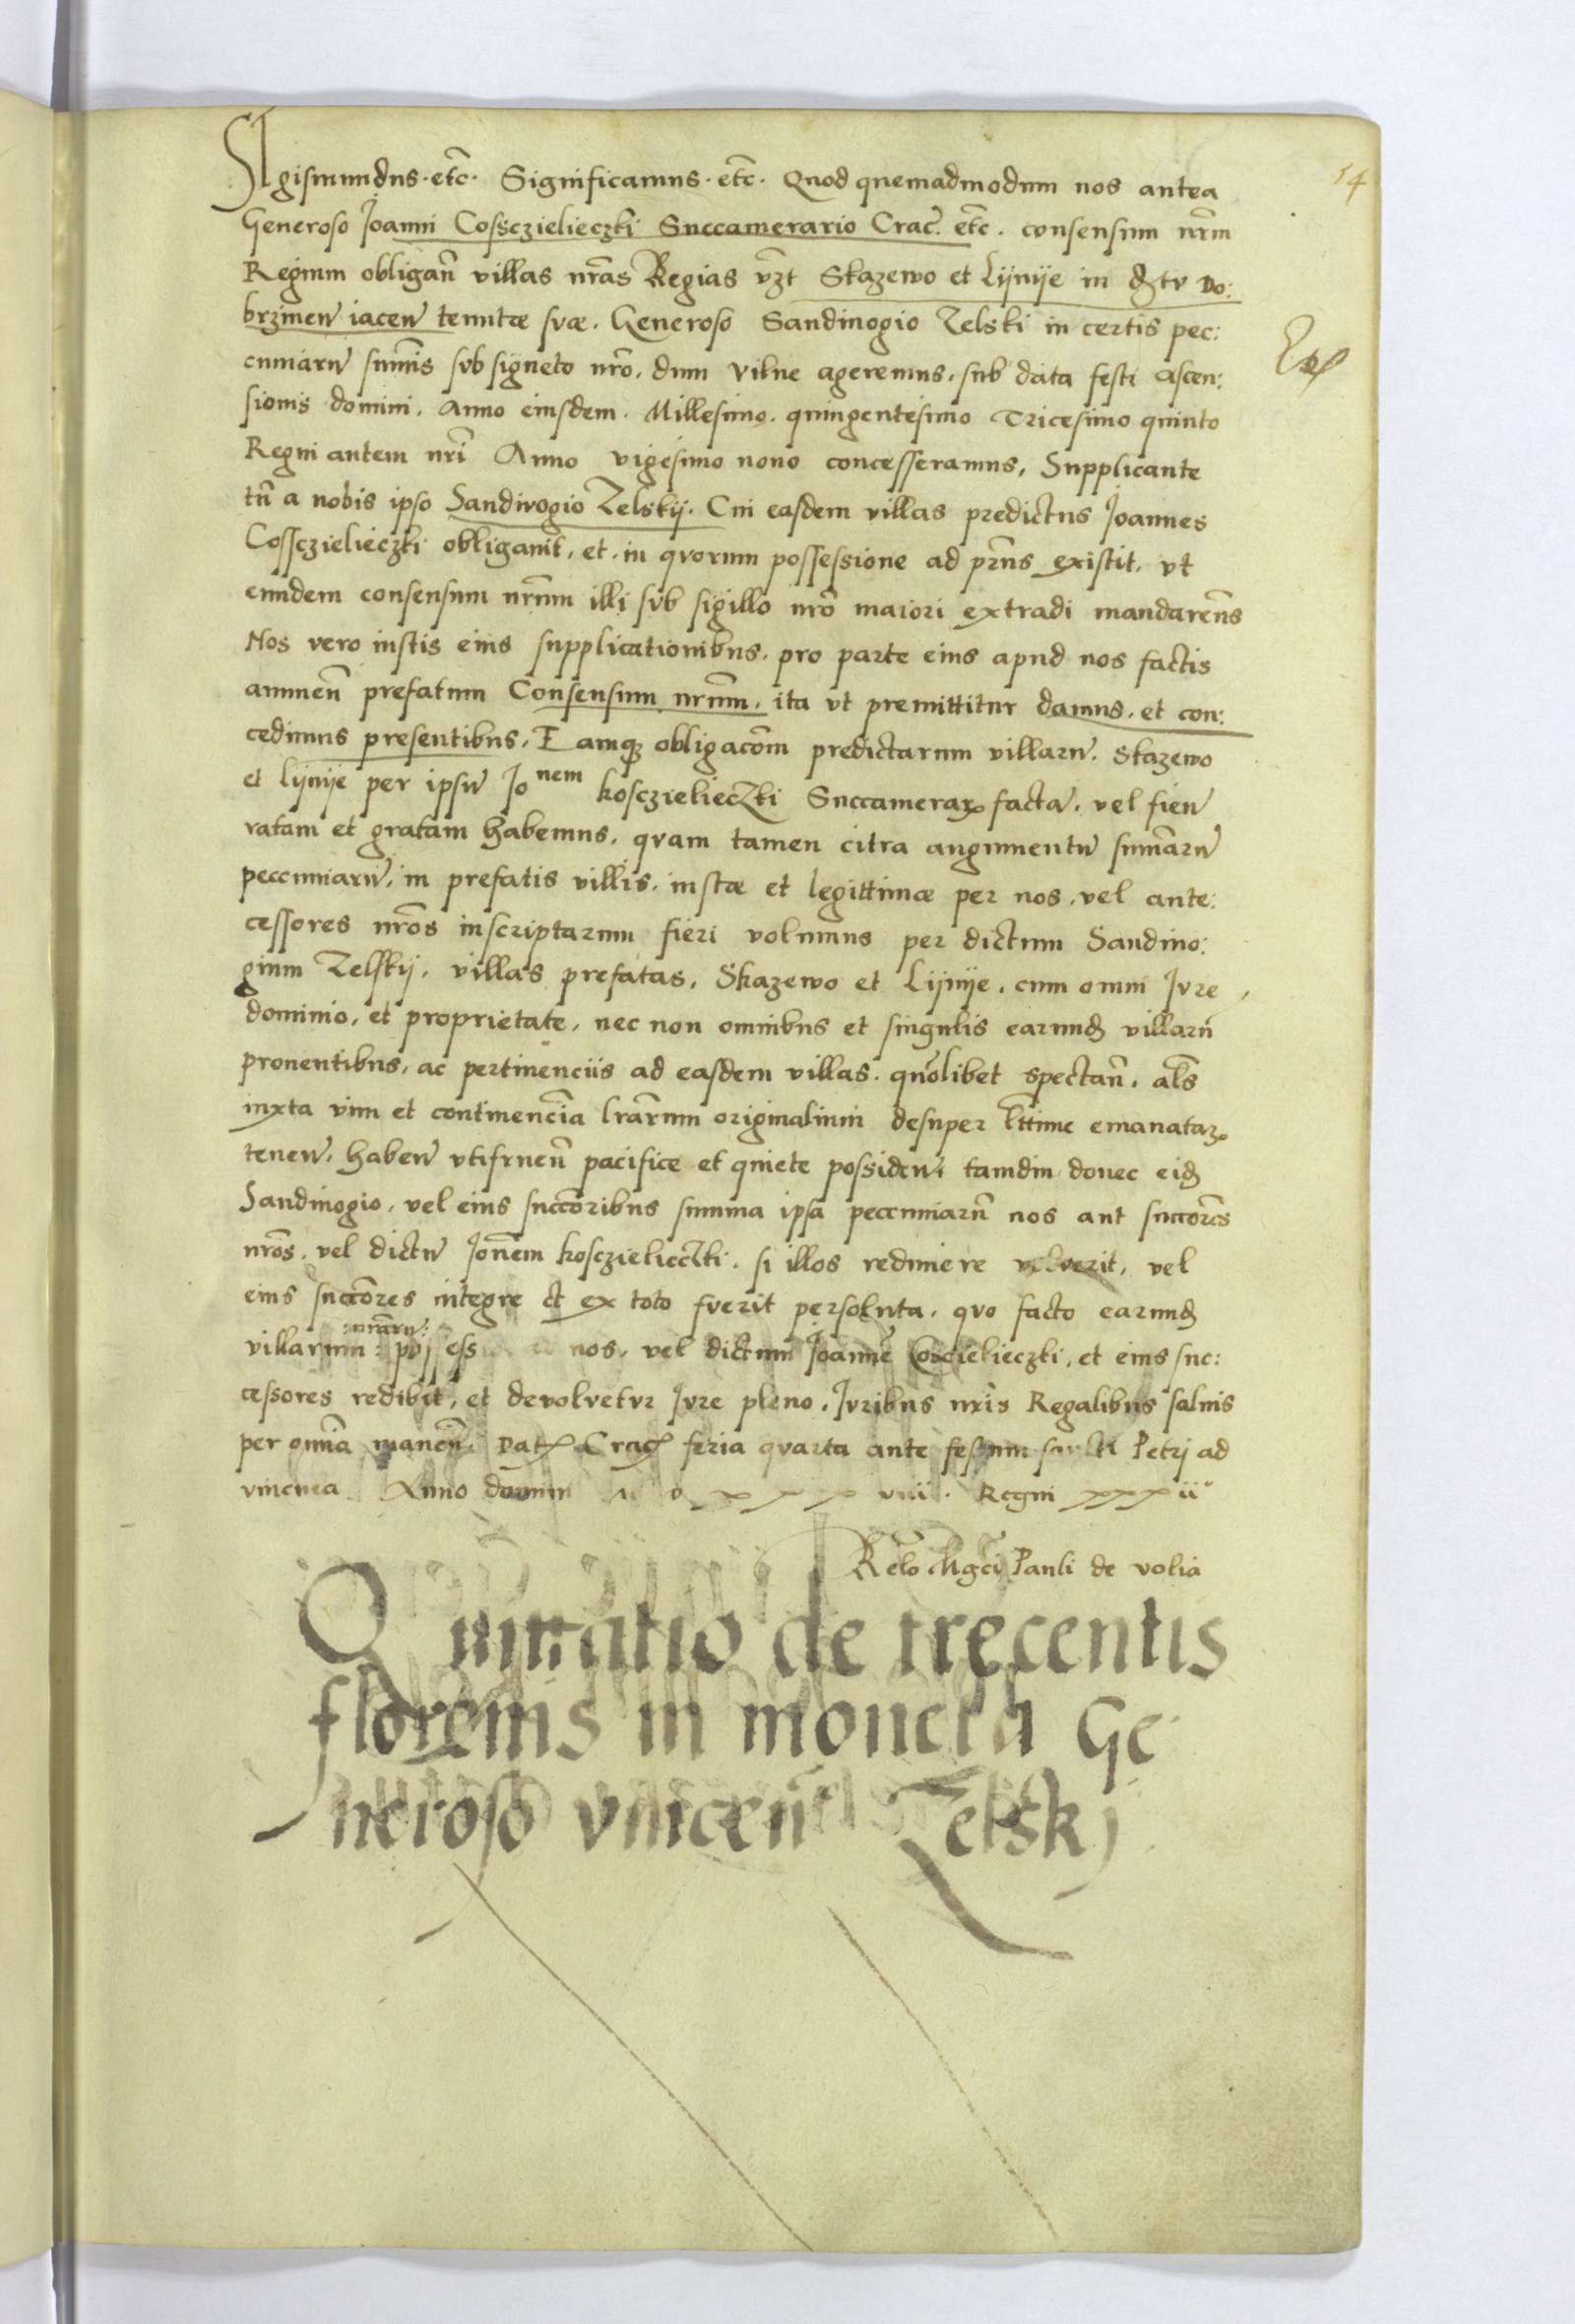 54
Sigismundus. etc̃. Significamus. etc̃. Quod quemadmodum nos antea
Generoso Joanni Cossczielieczki Succamerario Crac̃. etc̃. consensum nr̃m
Regium obligan̄ villas nr̃as Regias vʒt Skazewo et Lijnije in dʒtu Do:
brzineñ iaceñ tenutæ suæ. Generoso Sandiuogio Zelski in certis pec:
cuniarū sum̄is sub signeto nr̃o, dum Vilne ageremus, sub data festi ascen:
Exp
sionis domini. Anno eiusdem. Millesimo. quingentesimo Tricesimo quinto
Regni autem nr̃i Anno vigesimo nono concesseramus, Supplicante
tñ a nobis ipso Sandiuogio Zelskij. Cui easdem villas predictus Joannes
Cossczielieczki obligauit, et in quorum possessione ad pñs existit, vt
eundem consensum nr̃um illi sub sigillo nr̃o maiori extradi mandarem̃s
Nos vero iustis eius supplicationibus, pro parte eius apud nos factis
annueñ prefatum Consensum nr̃um, ita vt premittitur damus, et con:
cedimus presentibus, Eamqʒ obligac̃om predictarum villarū. Skazewo
et lijnije per ipsū Jo nem kosczielieczki Succamerarꝫ factā, vel fieñ
ratam et gratam habemus, quam tamen citra augumentū sum̄arū
peccuniarū, in prefatis villis, iustæ et legittimæ per nos, vel ante:
cessores nr̃os inscriptarum fieri volumus per dictum Sandiuo:
gium Zelskij, villas prefatas, Skazewo et Lijnije, cum omni Jure,
dominio, et proprietate, nec non omnibus et singulis earundʒ villarū
prouentibus, ac pertinenciis ad easdem villas. quõlibet spectañ, alĩs
iuxta vim et continencĩa lr̃arum originalium desuper lt̃time emanatarꝫ
teneñ, habeñ vtifrueñ pacifice et quiete possideñ, tamdiu donec eidʒ
Sandiuogio, vel eius succ̃oribus summa ipsa peccuniarũ nos aut succ̃ores
nr̃os, vel dictū Jõnem kosczielieczki, si illos redimere voluerit, vel
eius succ̃ores integre et ex toto fuerit persoluta, quo facto earundʒ
:nr̃arū:
villarum : possess et nos, vel dictum Joannẽ Coscielieczki, et eius suc:
cessores redibit, et devoluetur Jure pleno, Juribus nr̃is Regalibus saluis
per omñia maneñ. Datʒ Cracʒ feria quarta ante festum sancti Petri ad
vincula Anno domini M D X X X viii. Regni xxxii°
Relõ Mgc̃i Pauli de volia
Quittatio de trecentis
florenis in moneta Ge
neroso vincenti Zelskj